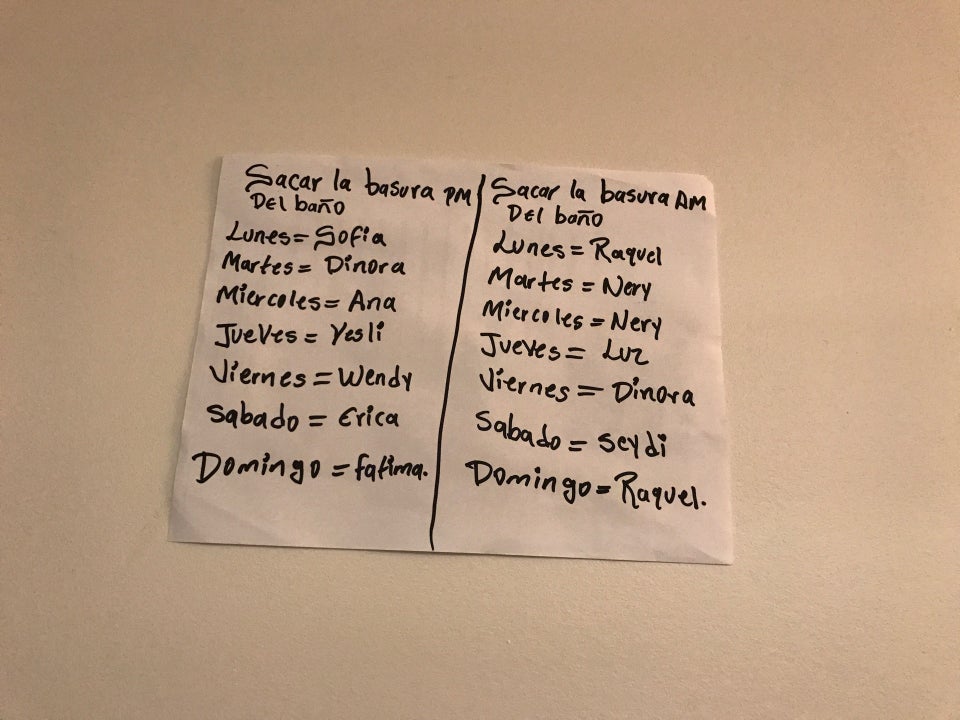 Sacar la basura PM
DEL baño
Lunes = Sofia
Martes = Dinora
Miercoles = Ana
Jueves = Yesli
Viernes = Wendy
Sabado = Erica
Domingo = fatima.
Sacar la basura AM
DEL baño
Lunes = Raquel
Martes = Nery
Miercoles = Nery
Jueves = Luz
Viernes = Dinora
Sabado = Seydi
Domingo = Raquel.